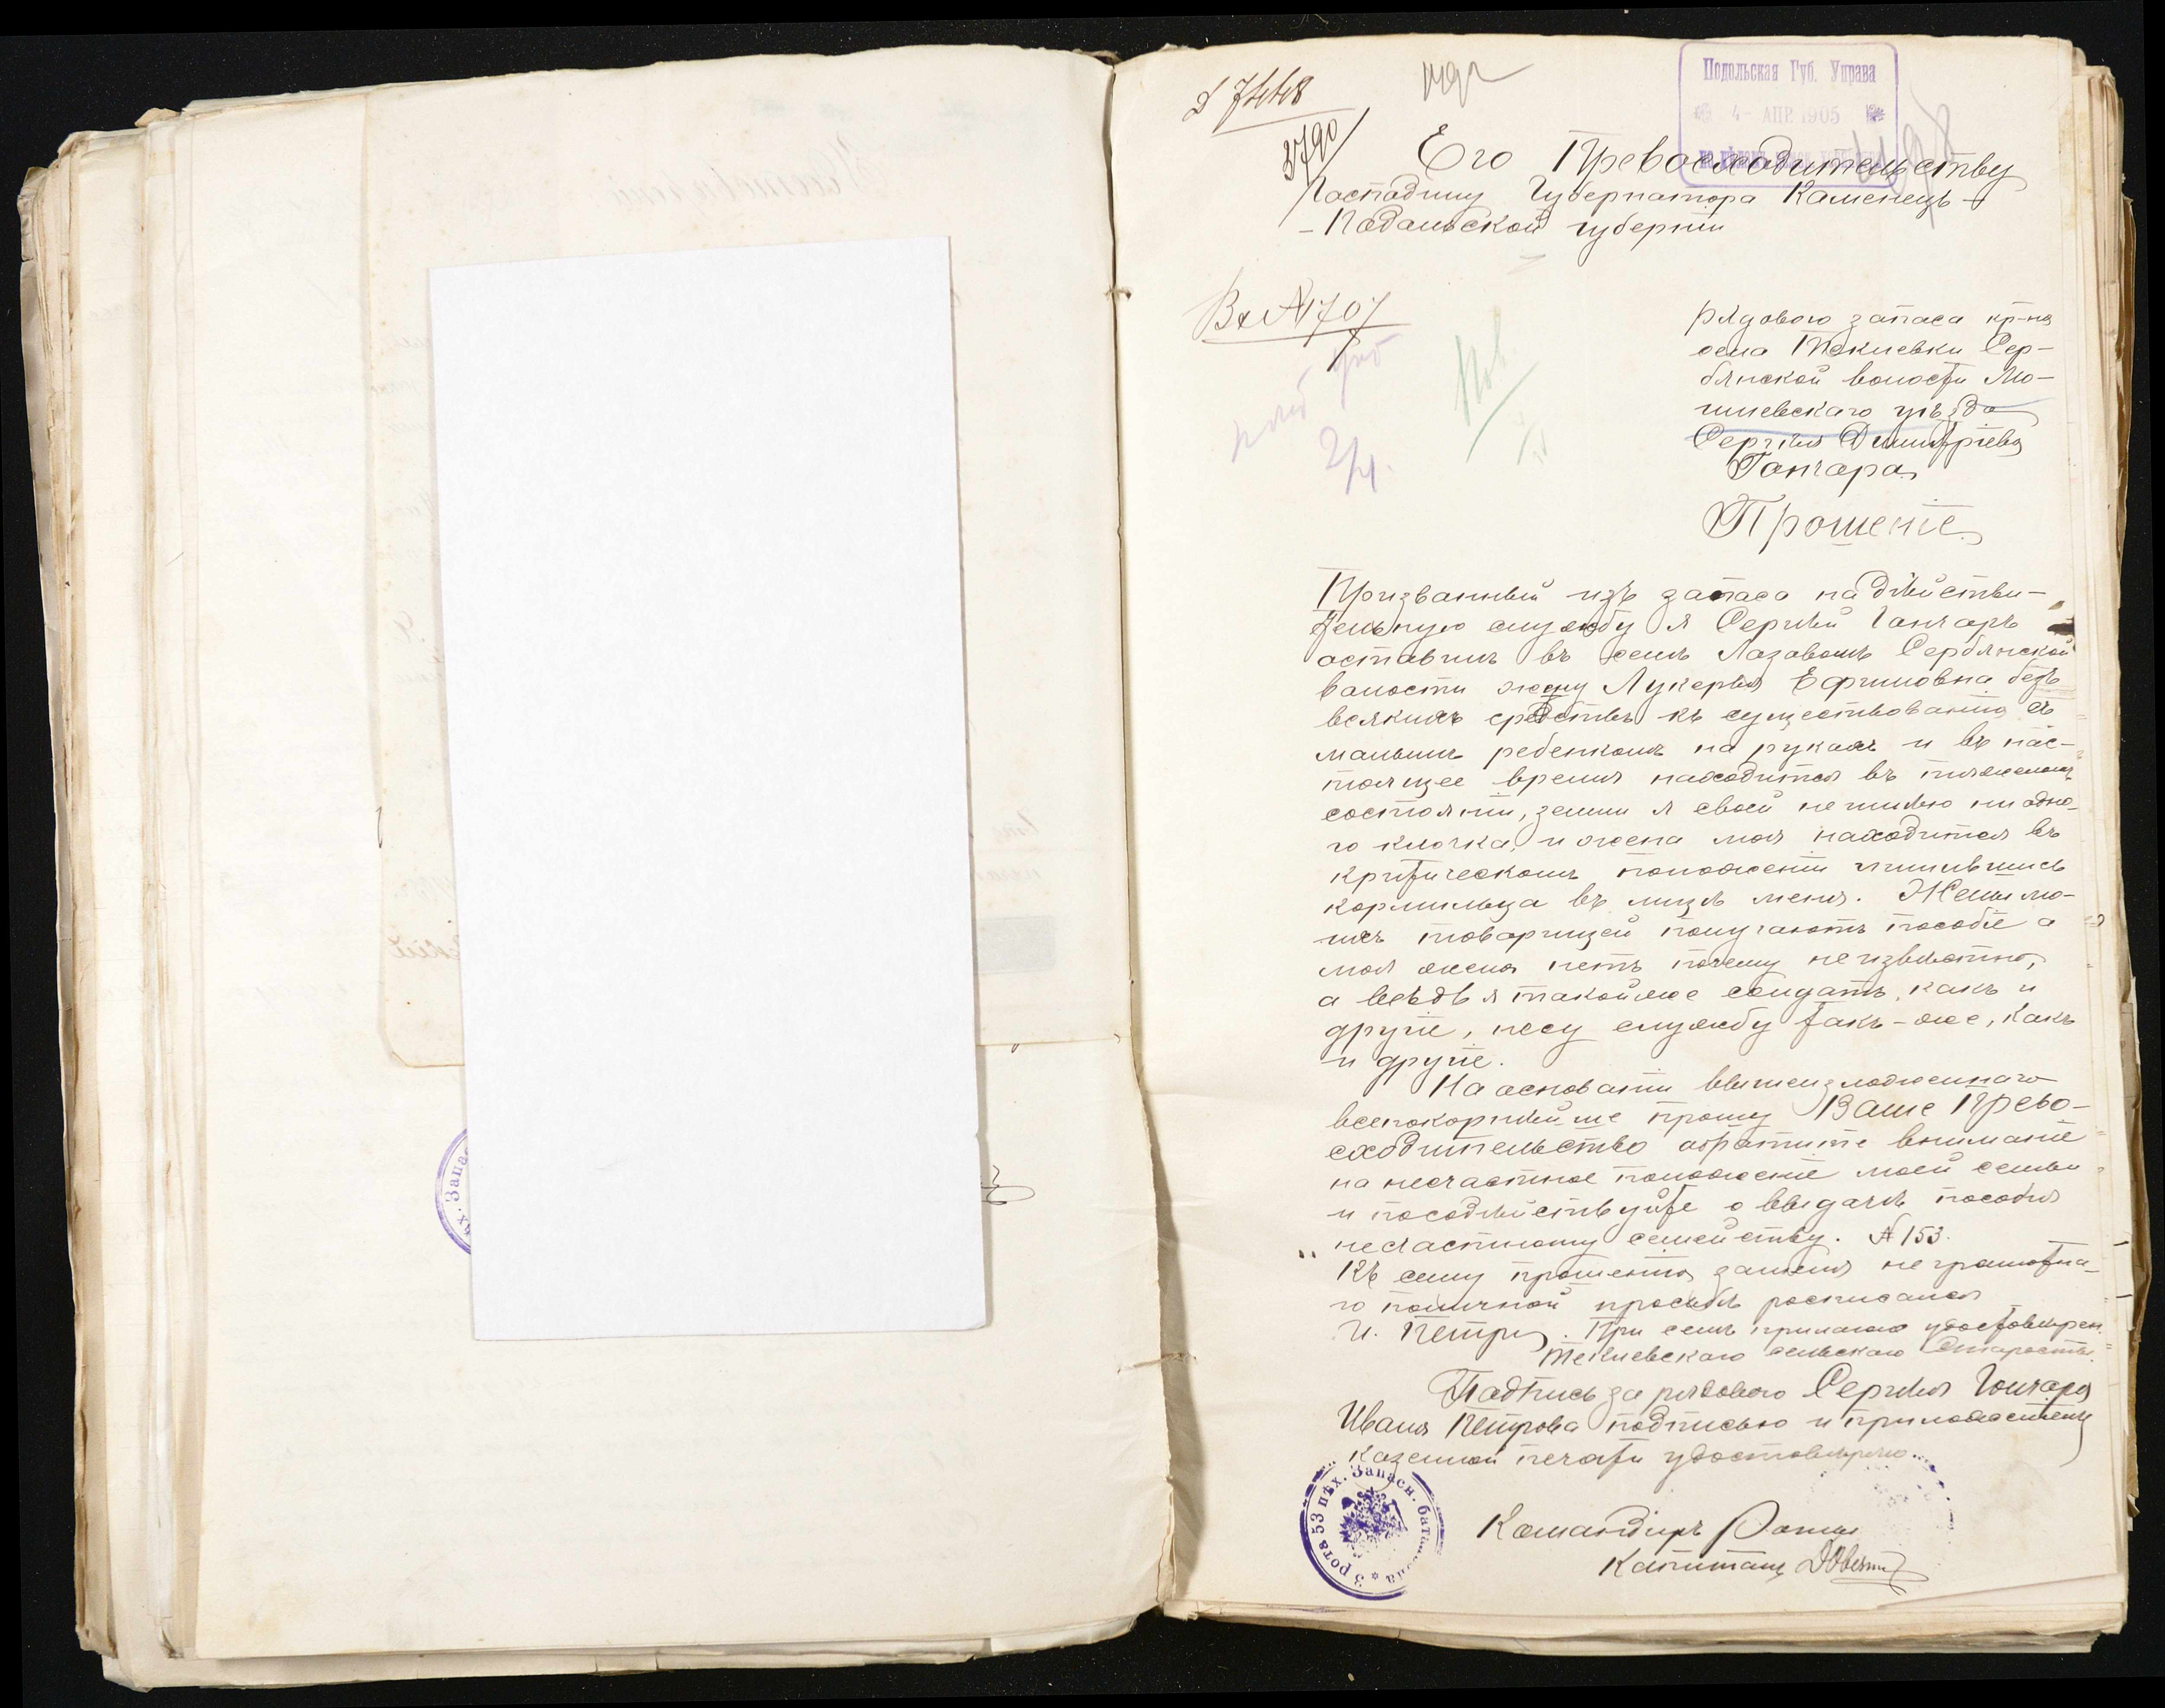 Подольская Губ. Управа
4 - АПР. 1905
7448
3790
Его Превосходительству
Господину Губернатора Каменецъ-
- Подольской губернiи
Вх № 1707
2/4.
рядового запаса кр-на
села Текиевки Сер-
блнской волости Мо-
гилевскаго уѣзда
Сергѣя Димитрiева
Гончара
Прошенiе
Призванный изъ запаса на дѣйстви-
тельную службу я Сергѣй Гончаръ
оставилъ въ селѣ Лазавомъ Серблнской
волости жену Лукерья Ефимовна безъ
всякихъ средствъ къ существованiю съ
малымъ ребенкомъ на рукахъ и въ нас-
тоящее время находится въ тяжеломъ
состоянiи, земли я своей не имѣю ни одно-
го клочка, и жена моя находится въ
критическомъ положенiи лишившись
кормильца въ лицѣ меня. Жены мо-
ихъ товарищей получаютъ пособiе а
моя жена нетъ почему не извѣстно,
а вѣдь я такой же солдатъ, какъ и
другiе, несу службу такъ-же, какъ
и другiе.
На основанiи вышеизложеннаго
всепокорнѣйше прошу Ваше Прево-
сходительство обратите вниманiе
на несчастное положенiе моей семьи
и посодѣйствуйте о выдачѣ пособiя
несчастному семейству. № 153.
Къ сему прошенiю за неграмотна-
го по личной просьбѣ росписался
И. Петри. При семъ прилагаю удостовѣрен.
Текиевскаго сельскаго Старосты.
Подпись за рядового Сергѣя Гончара
Ивана Петрова подписью и приложенiемъ
казенной печати удостовѣряю.
3 рота 53 пѣх. Запасн. баталiона
Командиръ Роты
Капитанъ
ѣх. Запас